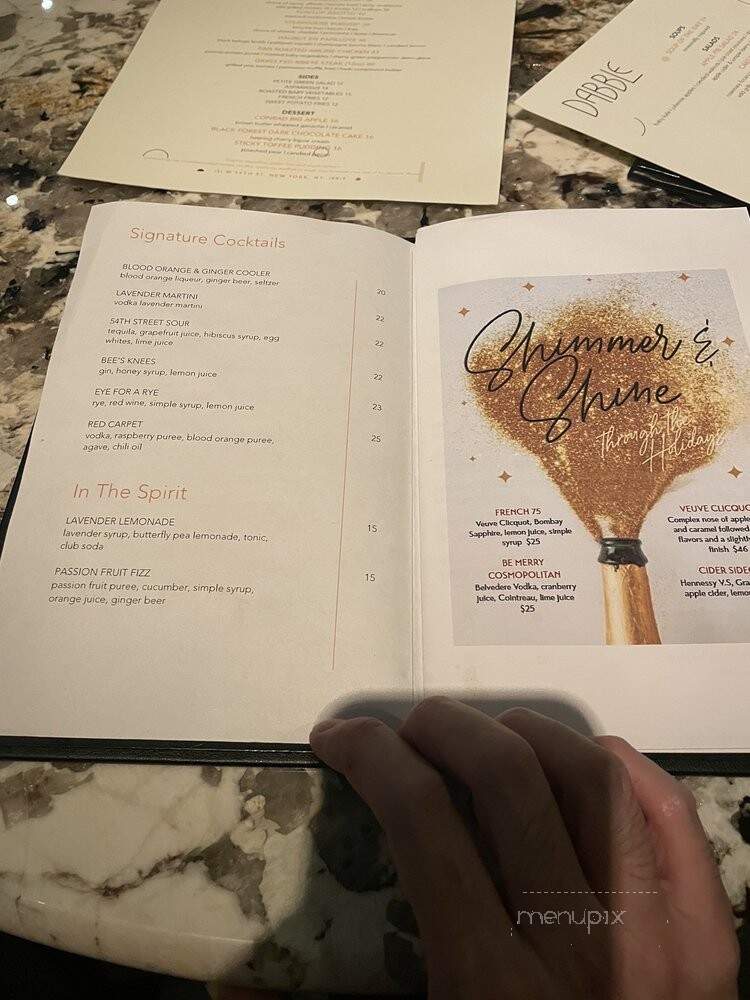 SIDES
PETITE GREEN SALAD 12
ASPARAGUS 14
ROASTED BABY VEGETABLES 15
FRENCH FRIES 12
SWEET POTATO FRIES 12
DESSERT
CONRAD BIG APPLE 16
brown butter whipped ganache / caramel
BLACK FOREST DARK CHOCOLATE CAKE 16
STICKY TOFFEE PUDDING 16
poached pear / candied
SOUPS
SALADS
DABBLE
Signature Cocktails
BLOOD ORANGE & GINGER COOLER
blood orange liqueur, ginger beer, seltzer
20
LAVENDER MARTINI
vodka lavender martini
22
54TH STREET SOUR
tequila, grapefruit juice, hibiscus syrup, egg
whites, lime juice
22
BEE'S KNEES
gin, honey syrup, lemon juice
22
EYE FOR A RYE
rye, red wine, simple syrup, lemon juice
23
RED CARPET
vodka, raspberry puree, blood orange puree,
agave, chili oil
25
In The Spirit
LAVENDER LEMONADE
lavender syrup, butterfly pea lemonade, tonic,
club soda
15
PASSION FRUIT FIZZ
passion fruit puree, cucumber, simple syrup,
orange juice, ginger beer
15
Shimmer &
Shine
Through the
Holidays
FRENCH 75
Veuve Clicquot, Bombay
Sapphire, lemon juice, simple
syrup $25
BE MERRY
COSMOPOLITAN
Belvedere Vodka, cranberry
juice, Cointreau, lime juice
$25
VEUVE CLICQUO
Complex nose of apple
and caramel followed
flavors and a slightl
finish $46
CIDER SIDEC
Hennessy V.S, Gra
apple cider, lemo
menupix